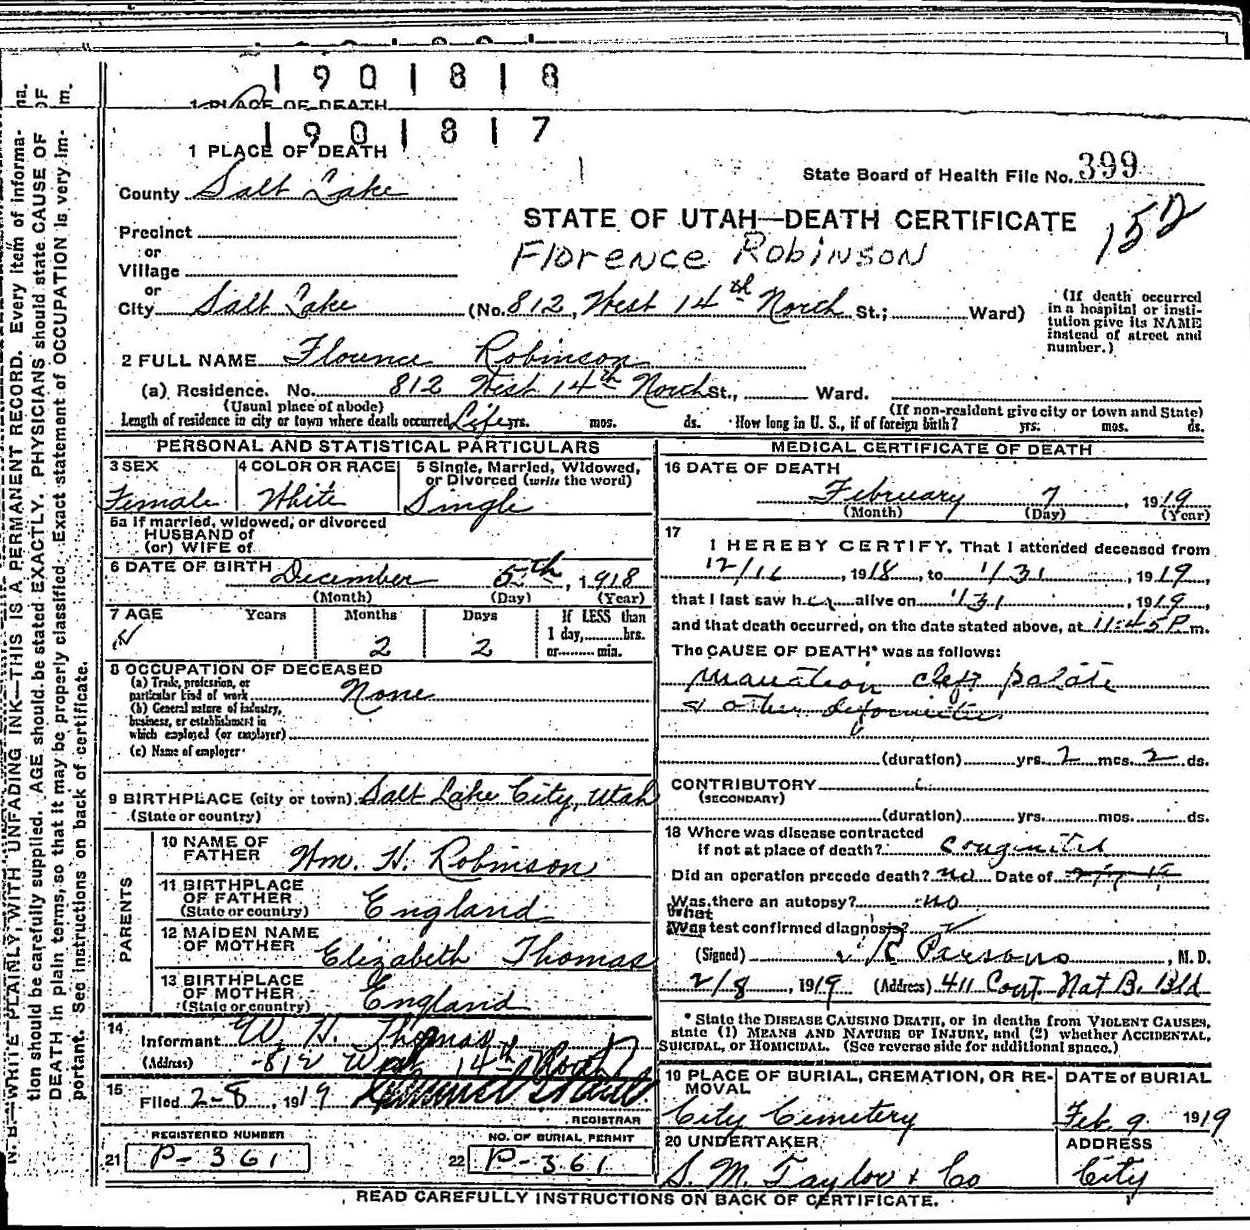 1901818
1 PLACE OF DEATH
1901817
1 PLACE OF DEATH
State Board of Health File No. 399
County Salt Lake
STATE OF UTAH—DEATH CERTIFICATE
152
Precinct
Florence Robinson
or
Village
or
City Salt Lake (No. 812, West 14th North St.; Ward)
(If death occurred in a hospital or insti-
tution give its NAME
instead of street and
number.)
2 FULL NAME Florence Robinson
(a) Residence. No. 812 West 14th North St., Ward.
(Usual place of abode) (If non-resident give city or town and State)
Length of residence in city or town where death occurred Life yrs. mos. ds. How long in U. S., if of foreign birth? yrs. mos. ds.
PERSONAL AND STATISTICAL PARTICULARS
3 SEX 4 COLOR OR RACE 5 Single, Married, Widowed,
or Divorced (write the word)
Female White Single
5a If married, widowed, or divorced
HUSBAND of
(or) WIFE of
6 DATE OF BIRTH December 5th, 1918
(Month) (Day) (Year)
7 AGE Years Months Days If LESS than
1 day, hrs.
2 2 or min.
8 OCCUPATION OF DECEASED
(a) Trade, profession, or
particular kind of work None
(b) General nature of industry,
business, or establishment in
which employed (or employer)
(c) Name of employer
9 BIRTHPLACE (city or town) Salt Lake City, Utah
(State or country)
PARENTS
10 NAME OF
FATHER Wm. H. Robinson
11 BIRTHPLACE
OF FATHER England
(State or country)
12 MAIDEN NAME
OF MOTHER Elizabeth Thomas
13 BIRTHPLACE
OF MOTHER England
(State or country)
14
Informant W. H. Thomas
(Address) 812 West 14th North
15
Filed 2-8, 1919
REGISTRAR
REGISTERED NUMBER NO. OF BURIAL PERMIT
21 P-361 22 P-361
MEDICAL CERTIFICATE OF DEATH
16 DATE OF DEATH
February 7, 1919
(Month) (Day) (Year)
17
I HEREBY CERTIFY, That I attended deceased from
12/16, 1918, to 1/31, 1919,
that I last saw her alive on 1/31, 1919,
and that death occurred, on the date stated above, at 11:45 P m.
The CAUSE OF DEATH* was as follows:
cleft palate
& other deformities
(duration) yrs. 2 mos. 2 ds.
CONTRIBUTORY
(SECONDARY)
(duration) yrs. mos. ds.
18 Where was disease contracted
if not at place of death? Congenital
Did an operation precede death? no Date of
Was there an autopsy? no
What
Was test confirmed diagnosis?
(Signed) R Persons, M. D.
2/8, 1919 (Address) 411 Cont Nat B. Bld
* State the DISEASE CAUSING DEATH, or in deaths from VIOLENT CAUSES,
state (1) MEANS AND NATURE OF INJURY, and (2) whether ACCIDENTAL,
SUICIDAL, or HOMICIDAL. (See reverse side for additional space.)
19 PLACE OF BURIAL, CREMATION, OR RE-
MOVAL DATE of BURIAL
City Cemetery Feb. 9 1919
20 UNDERTAKER ADDRESS
S. M. Taylor + Co City
READ CAREFULLY INSTRUCTIONS ON BACK OF CERTIFICATE.
N. B.—WRITE PLAINLY, WITH UNFADING INK—THIS IS A PERMANENT RECORD. Every item of informa-
tion should be carefully supplied. AGE should be stated EXACTLY. PHYSICIANS should state CAUSE OF
DEATH in plain terms, so that it may be properly classified. Exact statement of OCCUPATION is very im-
portant. See instructions on back of certificate.